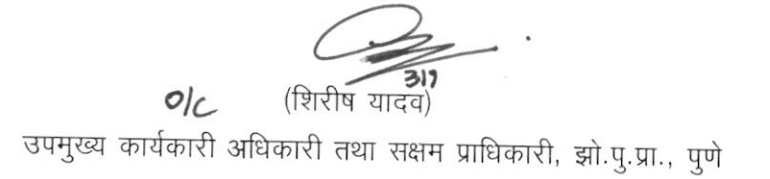 317
O/C (शिरीष यादव)
उपमुख्य कार्यकारी अधिकारी तथा सक्षम प्राधिकारी, झो.पु.प्रा., पुणे